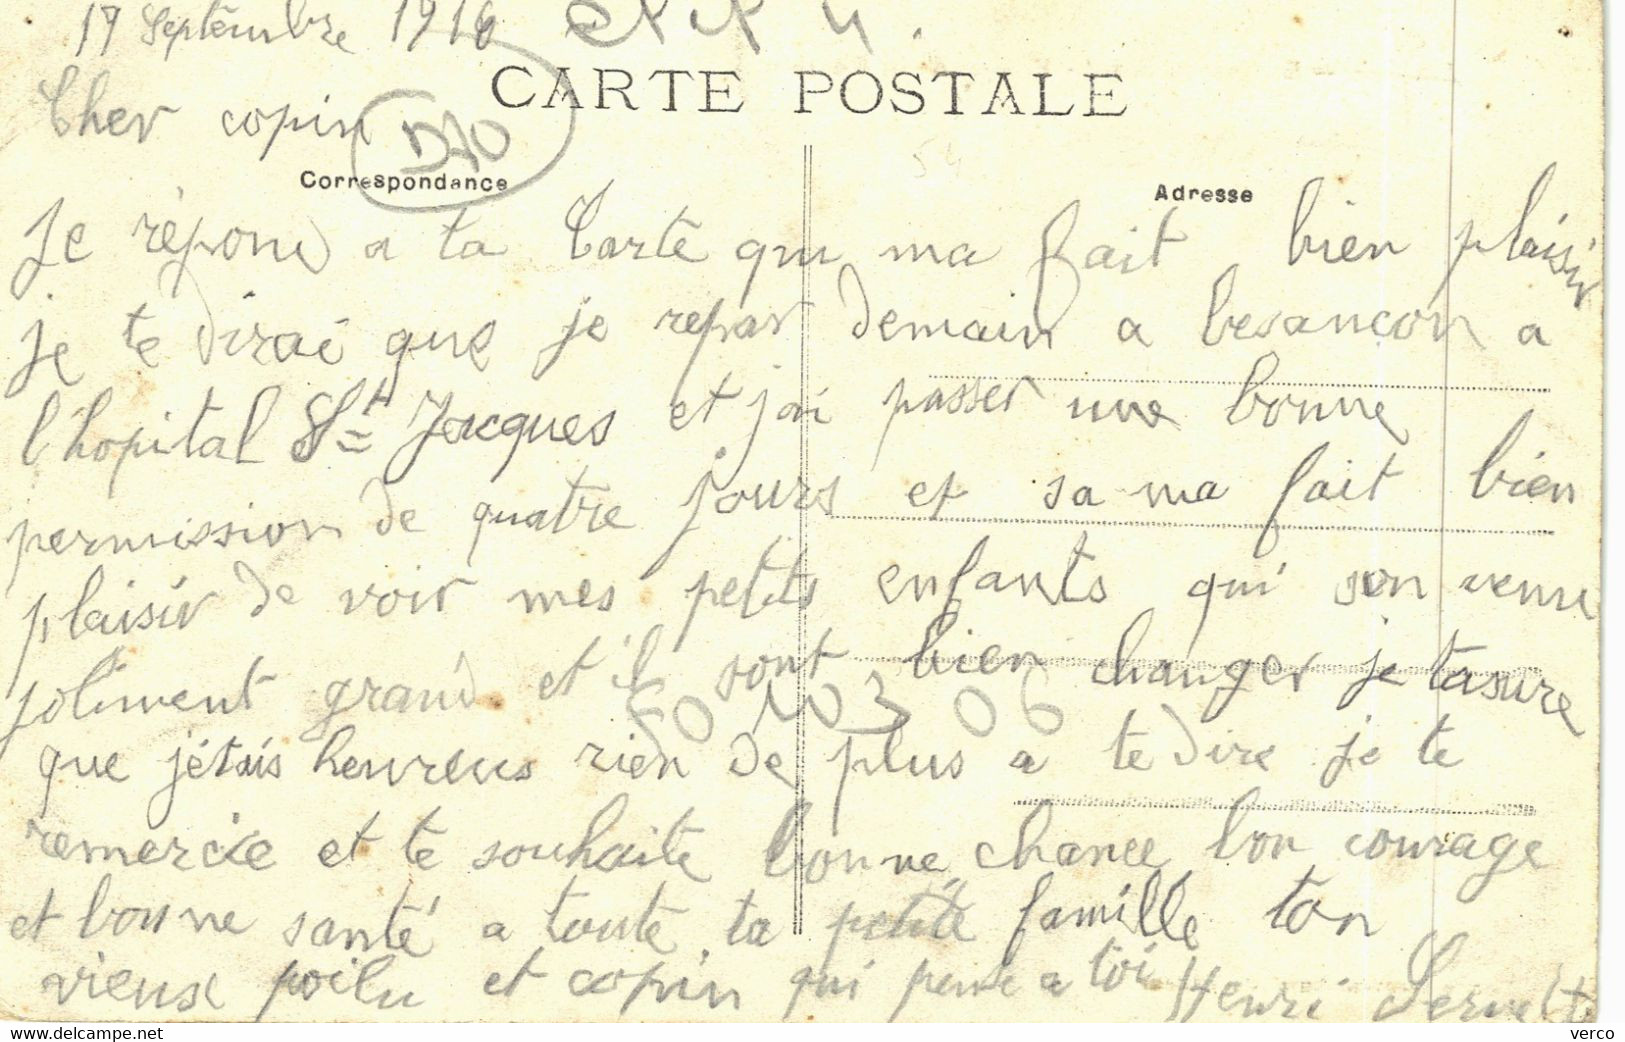 17 septembre 1916
CARTE POSTALE
Cher copin
D70
54
Correspondance
Adresse
Je répond a ta Carte qui ma fait bien plaisir
je te dirai que je repar demain a besançon a
l'hopital St Jacques et jai passer une bonne
permission de quatre jours et sa ma fait bien
plaisir de voir mes petits enfants qui son venu
joliment grand et il sont bien changer je tasure
que jétais heureus rien de plus a te dire je te
remercie et te souhaite bonne chance bon courage
et bonne santé a toute ta petite famille ton
vieux poilu et copin qui pense a toi Henri
delcampe.net
verco